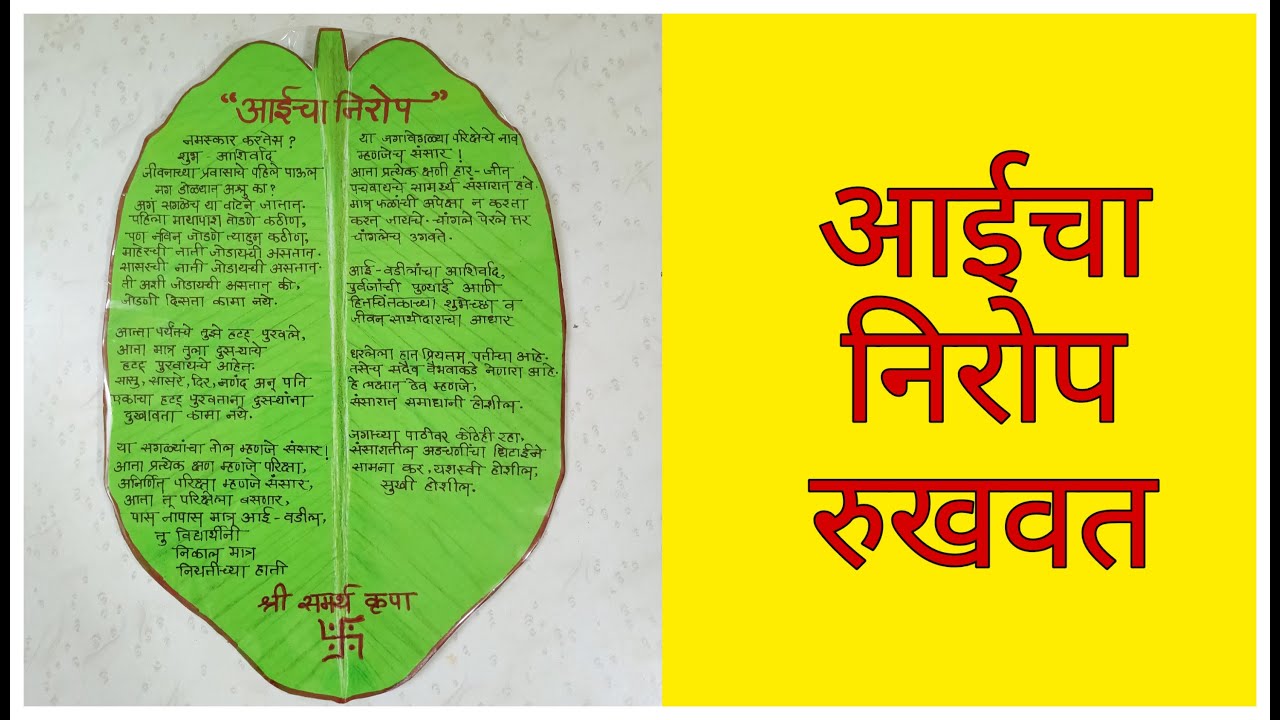 “आईचा निरोप”
नमस्कार करतेस ?
शुभ - आशिर्वाद
जीवनाच्या प्रवासाचे पहिले पाऊल
मग डोळ्यात अश्रू का?
अगं सगळेच या वाटेने जातात.
पहिला मायापाश तोडणे कठीण,
पण नविन जोडणे त्याहुन कठीण,
माहेरची नाती जोडायची असतात.
सासरची नाती जोडायची असतात.
ती अशी जोडायची असतात की,
जोडणी दिसता कामा नये.
आत्ता पर्यंतचे तुझे हटट् पुरवले,
आता मात्र तुला दुसऱ्याचे
हटट् पुरवायचे आहेत.
सासु, सासरे, दिर, नणंद अन् पति
एकाचा हटट् पुरवताना दुसऱ्यांना
दुखावता कामा नये.
या सगळ्यांचा तोल म्हणजे संसार!
आता प्रत्येक क्षण म्हणजे परिक्षा,
अनिर्णित परिक्षा म्हणजे संसार,
आता तू परिक्षेला बसणार,
पास नापास मात्र आई - वडील,
तु विद्यार्थीनी
निकाल मात्र
नियतीच्या हाती
या जगावेगळ्या परिक्षेचे नाव
म्हणजेच संसार !
आता प्रत्येक क्षणी हार - जीत
पचवायचे सामर्थ्य संसारात हवे.
मात्र फळाची अपेक्षा न करता
करत जायचे. चांगले पेरले तर
चांगलेच उगवते.
आई - वडीलांचा आशिर्वाद,
पुर्वजांची पुण्याई आणि
हितचिंतकाच्या शुभेच्छा व
जीवन साथीदाराचा आधार
धरलेला हात प्रियतम पतीचा आहे.
तसेच सदैव वैभवाकडे नेणारा आहे.
हे लक्षात ठेव म्हणजे,
संसारात समाधानी होशील.
जगाच्या पाठीवर कोठेही रहा,
संसारातील अडचणींचा धिटाईने
सामना कर, यशस्वी होशील,
सुखी होशील.
श्री समर्थ कृपा
आईचा
निरोप
रुखवत